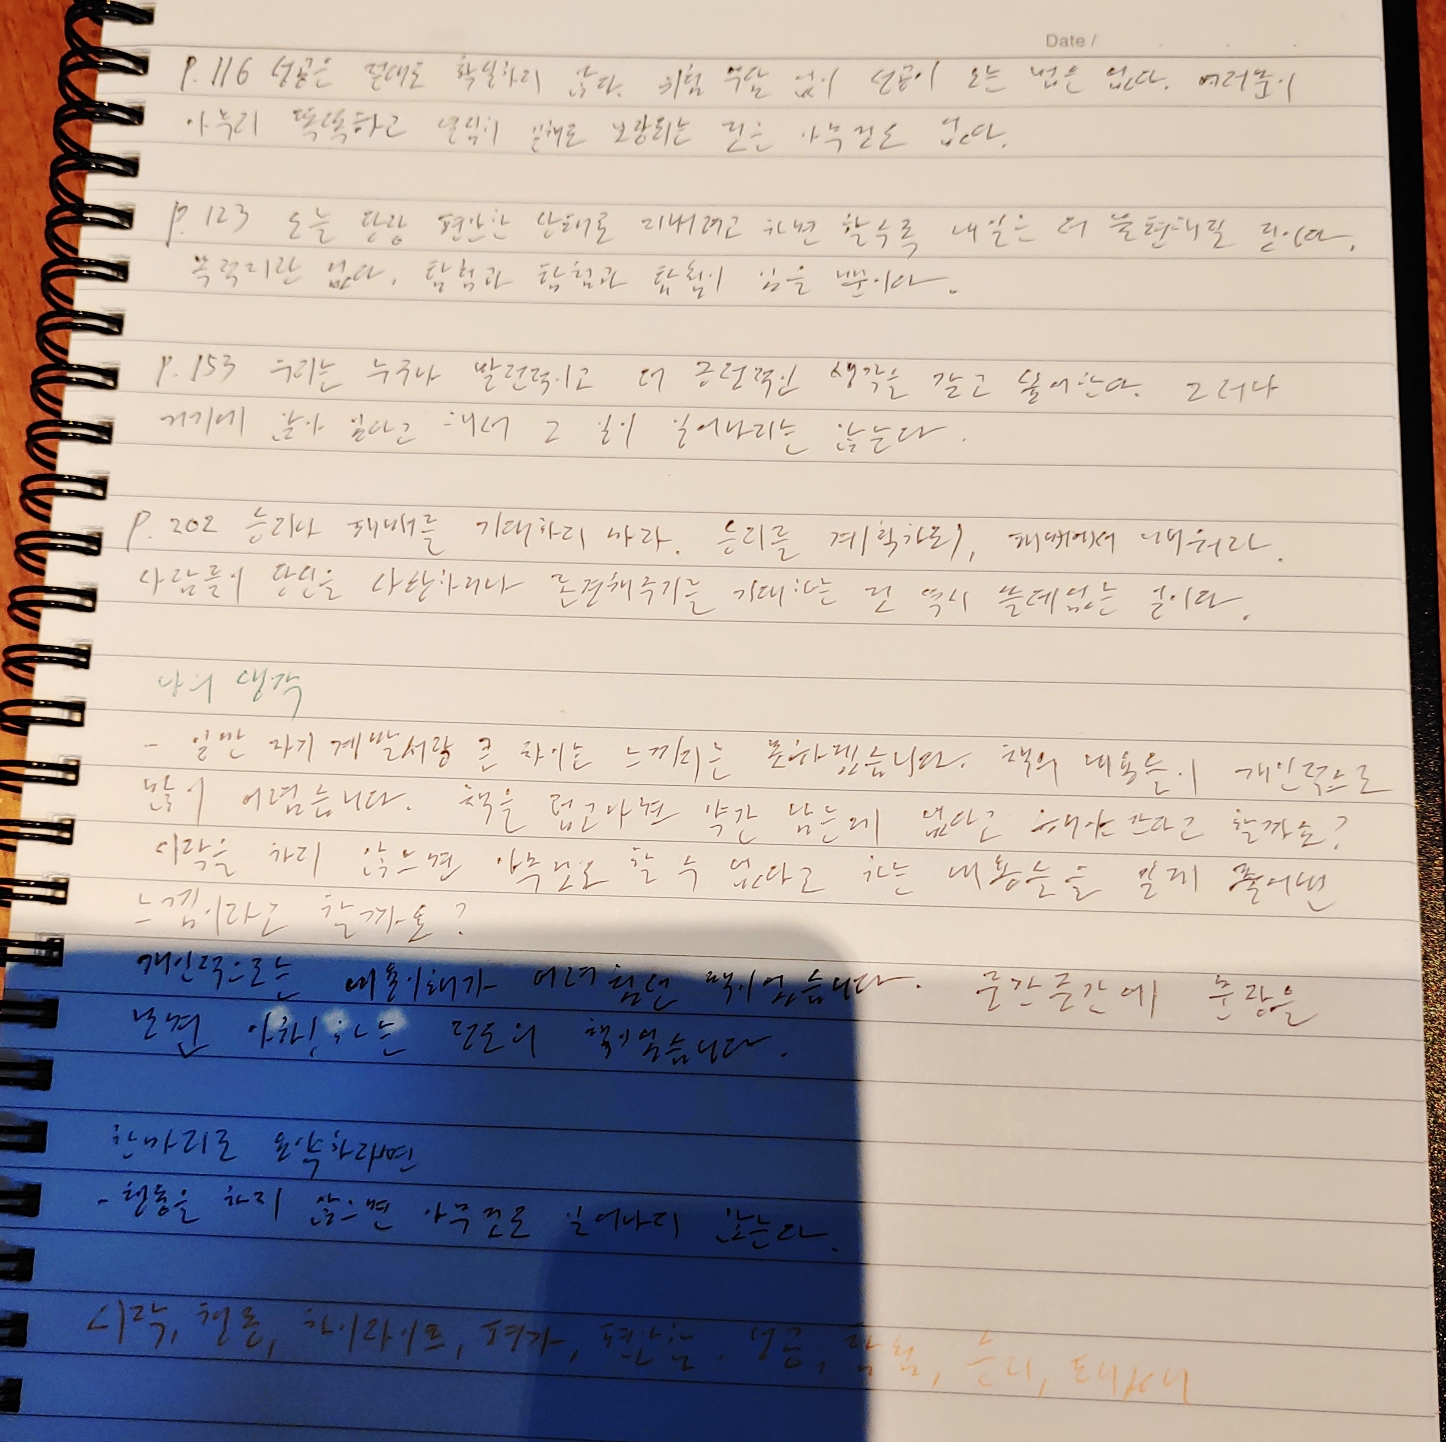 Date /
p. 116 성공은 절대로 확실하지 않다. 위험 부담 없이 성공이 오는 법은 없다. 여러분이
아무리 똑똑하고 열심히 일해도 보장되는 것은 아무것도 없다.
p. 123 오늘 당장 편안한 상태로 지내려고 하면 할수록 내일은 더 불편해질 것이다.
목적지란 없다. 탐험과 탐험과 탐험이 있을 뿐이다.
p. 153 우리는 누구나 발전적이고 더 긍정적인 생각을 갖고 싶어한다. 그러나
거기에 앉아 있다고 해서 그 일이 일어나지는 않는다.
p. 202 승리나 패배를 기대하지 마라. 승리를 계획하되, 패배에서 배워라.
사람들이 당신을 사랑하거나 존경해주기를 기대하는 것 역시 쓸데없는 일이다.
나의 생각
- 일반 자기계발서랑 큰 차이는 느끼지는 못하겠습니다. 책의 내용들이 개인적으로
많이 어렵습니다. 책을 덮고나면 약간 남는게 없다고 해야 한다고 할까요?
시작을 하지 않으면 아무것도 할 수 없다고 하는 내용들을 길게 풀어낸
느낌이라고 할까요?
개인적으로는 내용이해가 어려웠던 책이었습니다. 중간중간에 문장을
보면 아하! 하는 정도의 책이었습니다.
한마디로 요약하라면
- 행동을 하지 않으면 아무것도 일어나지 않는다.
시작, 행동, 하이라이트, 평가, 편안함, 성공, 탐험, 승리, 패배